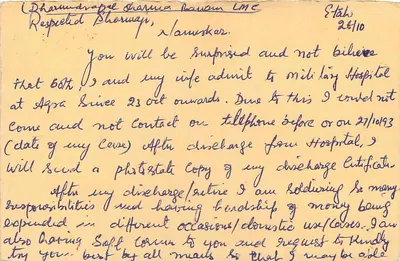 (Dharmendrapal Sharma Banam LMC
Etah
26/10
Respected Dharmapi,
Namaskar.
You will be surprised and not bilieve
that both, I and my wife admit to Military Hospital
at Agra Since 23 oct onwards. Due to this I could not
come and not contact on telephone before or on 27/10/93
(date of my Case) After discharge from Hospital, I
will send a photostate copy of my discharge Certificate.
After my discharge/retire I am solduring so many
responsibilities and having hardship of money being
expended in different occasions/domestic use/cases. I am
also having Soft Corner to you and request to Kindly
try your best by all means so that I may be able